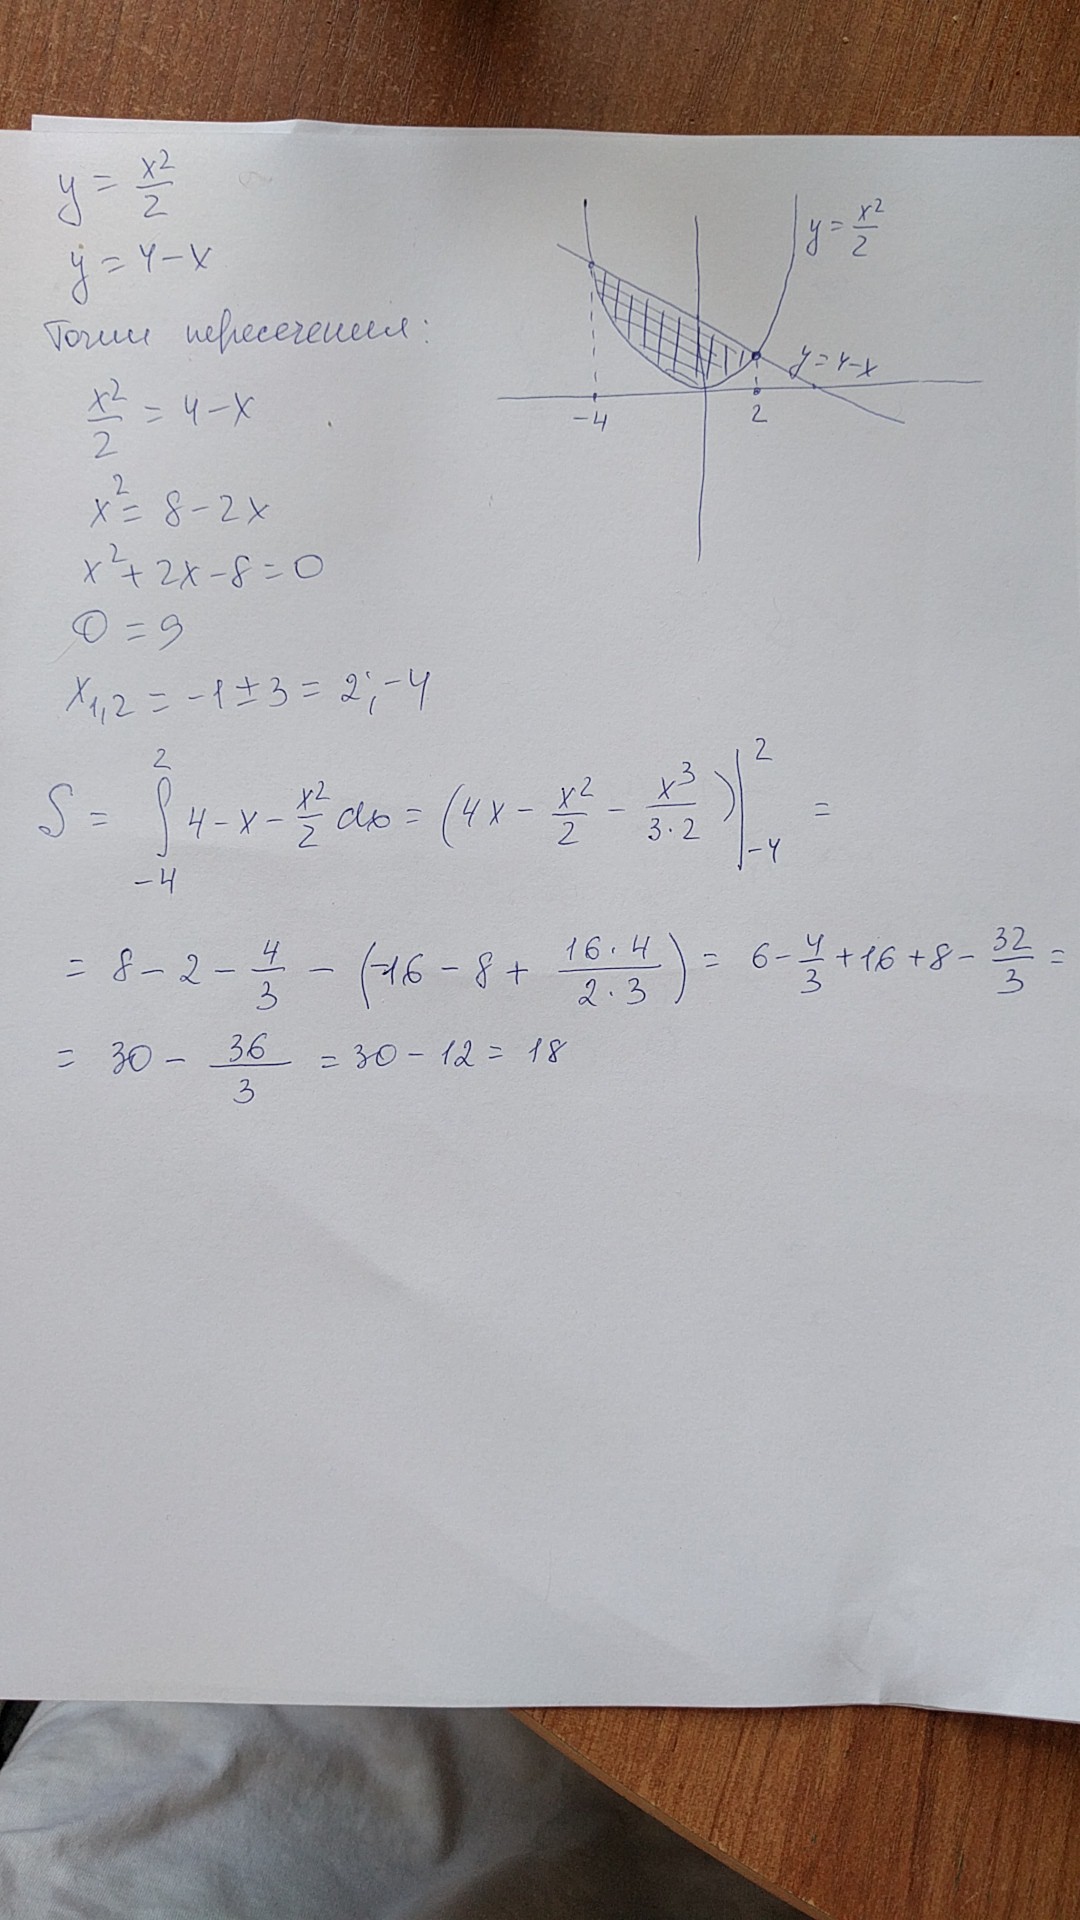 y = x²/2
y = 4 - x
Точки пересечения:
x²/2 = 4 - x
x² = 8 - 2x
x² + 2x - 8 = 0
D = 9
x₁,₂ = -1 ± 3 = 2; -4
y = x²/2
y = 4 - x
-4
2
S = ∫₋₄² 4 - x - x²/2 dx = (4x - x²/2 - x³/(3·2)) |₋₄² =
= 8 - 2 - 4/3 - (-16 - 8 + (16·4)/(2·3)) = 6 - 4/3 + 16 + 8 - 32/3 =
= 30 - 36/3 = 30 - 12 = 18